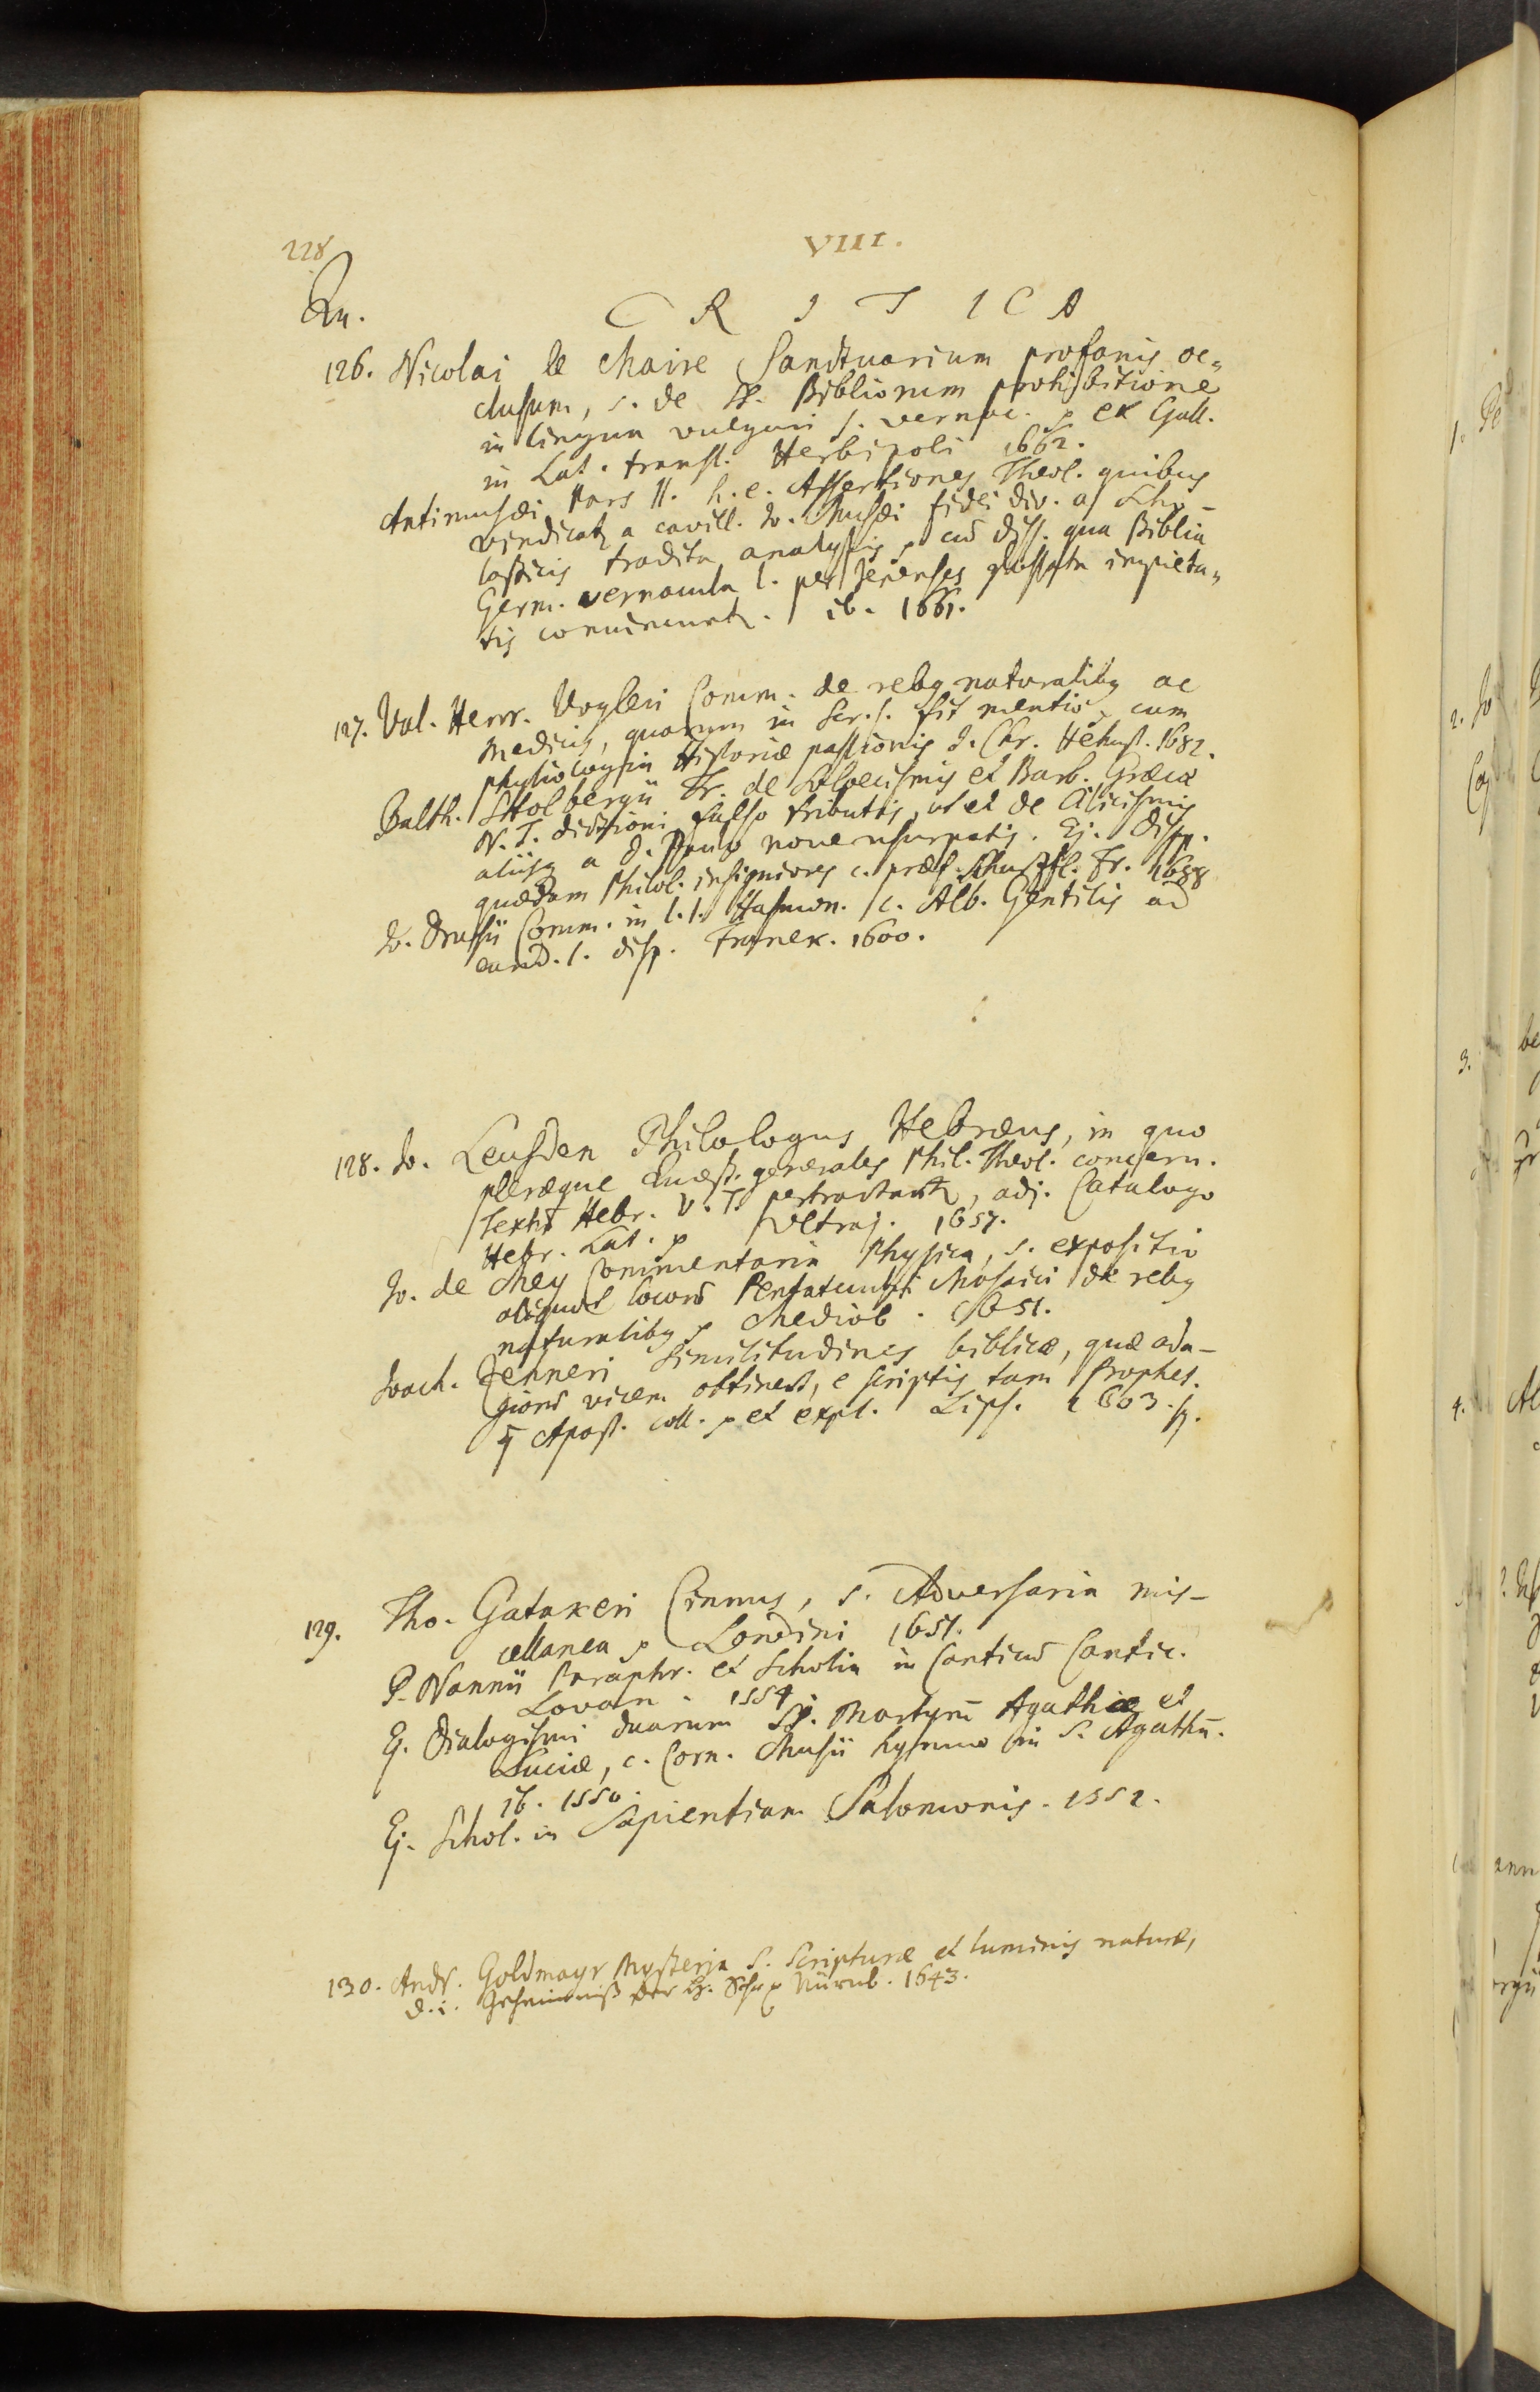 228
VIII.
Qu.
CRITICA
126. Nicolai le Maire Sanctuarium profanis oc=
clusum, s. de SS. Bibliorum prohibitione
in lingua vulgari s. vernac. p ex Gall.
in Lat. transl. Herbipoli 1662.
Antimusæi Pars II. h.e. Assertiones Theol. quibus
vindicatr a cavill. Jo. Musæi fidei div. a Scho-
lasticis tradita analysis p cū diss. qua Biblia
Germ. vernacula l. per Jenenses impieta=
tis convincuntr. ib. 1661.
127. Val. Henr. Vogleri Comm. de rebg naturalibg ac
medicis, quorum in Scr. s. fit mentio p cum
physiologia Historiæ passionis J. Chr. Helmst. 1682.
Balth. Stolbergii Tr. de Solœcismis et Barb. Græcæ
N. T. dictioni falso tributis, ut et de Cilicismis
aliisq a D. Paulo nove usurpatis. Ej. Disp.
quædam Philol. insigniores c. præf. Schurtzfl. Fr. 1688
Jo. Drusii Comm. in l. 1. Hasmon. c. Alb. Gentilis ad
eund. l. disp. Franek. 1600.
128. Jo. Leusden Philologus Hebræus, in quo
pleræque Quæst. generales Phil. Theol. concern.
Textū Hebr. V. T. pertractantr, adj. Catalogo
Hebr. Lat. p Ultraj. 1657.
Jo. de Mey Commentaria Physica, s. expositio
aliquot locorū Pentateuchi Mosaici de rebg
naturalibg p Mediob. 1651.
Joach. Zehneri Similitudines biblicæ, quæ ada-
giorū vicem obtinent, e scriptis tam Prophet.
q Apost. coll. p et expl. Lips. 1603.
129. Tho. Gatakeri Cinnus, s. Adversaria mis-
cellanea p Londini 1651.
P. Nannii Paraphr. et Scholia in Canticū Cantic.
Lovan. 1554.
Ej. Dialogismi duarum SS. Martyrū Agathiæ et
Luciæ, c. Corn. Musii hymno in S. Agathā.
ib. 1550.
Ej. Schol. in Sapientiam Salomonis. 1552.
130. Andr. Goldmayr Mysteria S. Scripturæ et luminis naturæ,
d. i. Geheimniß der H. Schr p Nürnb. 1643.